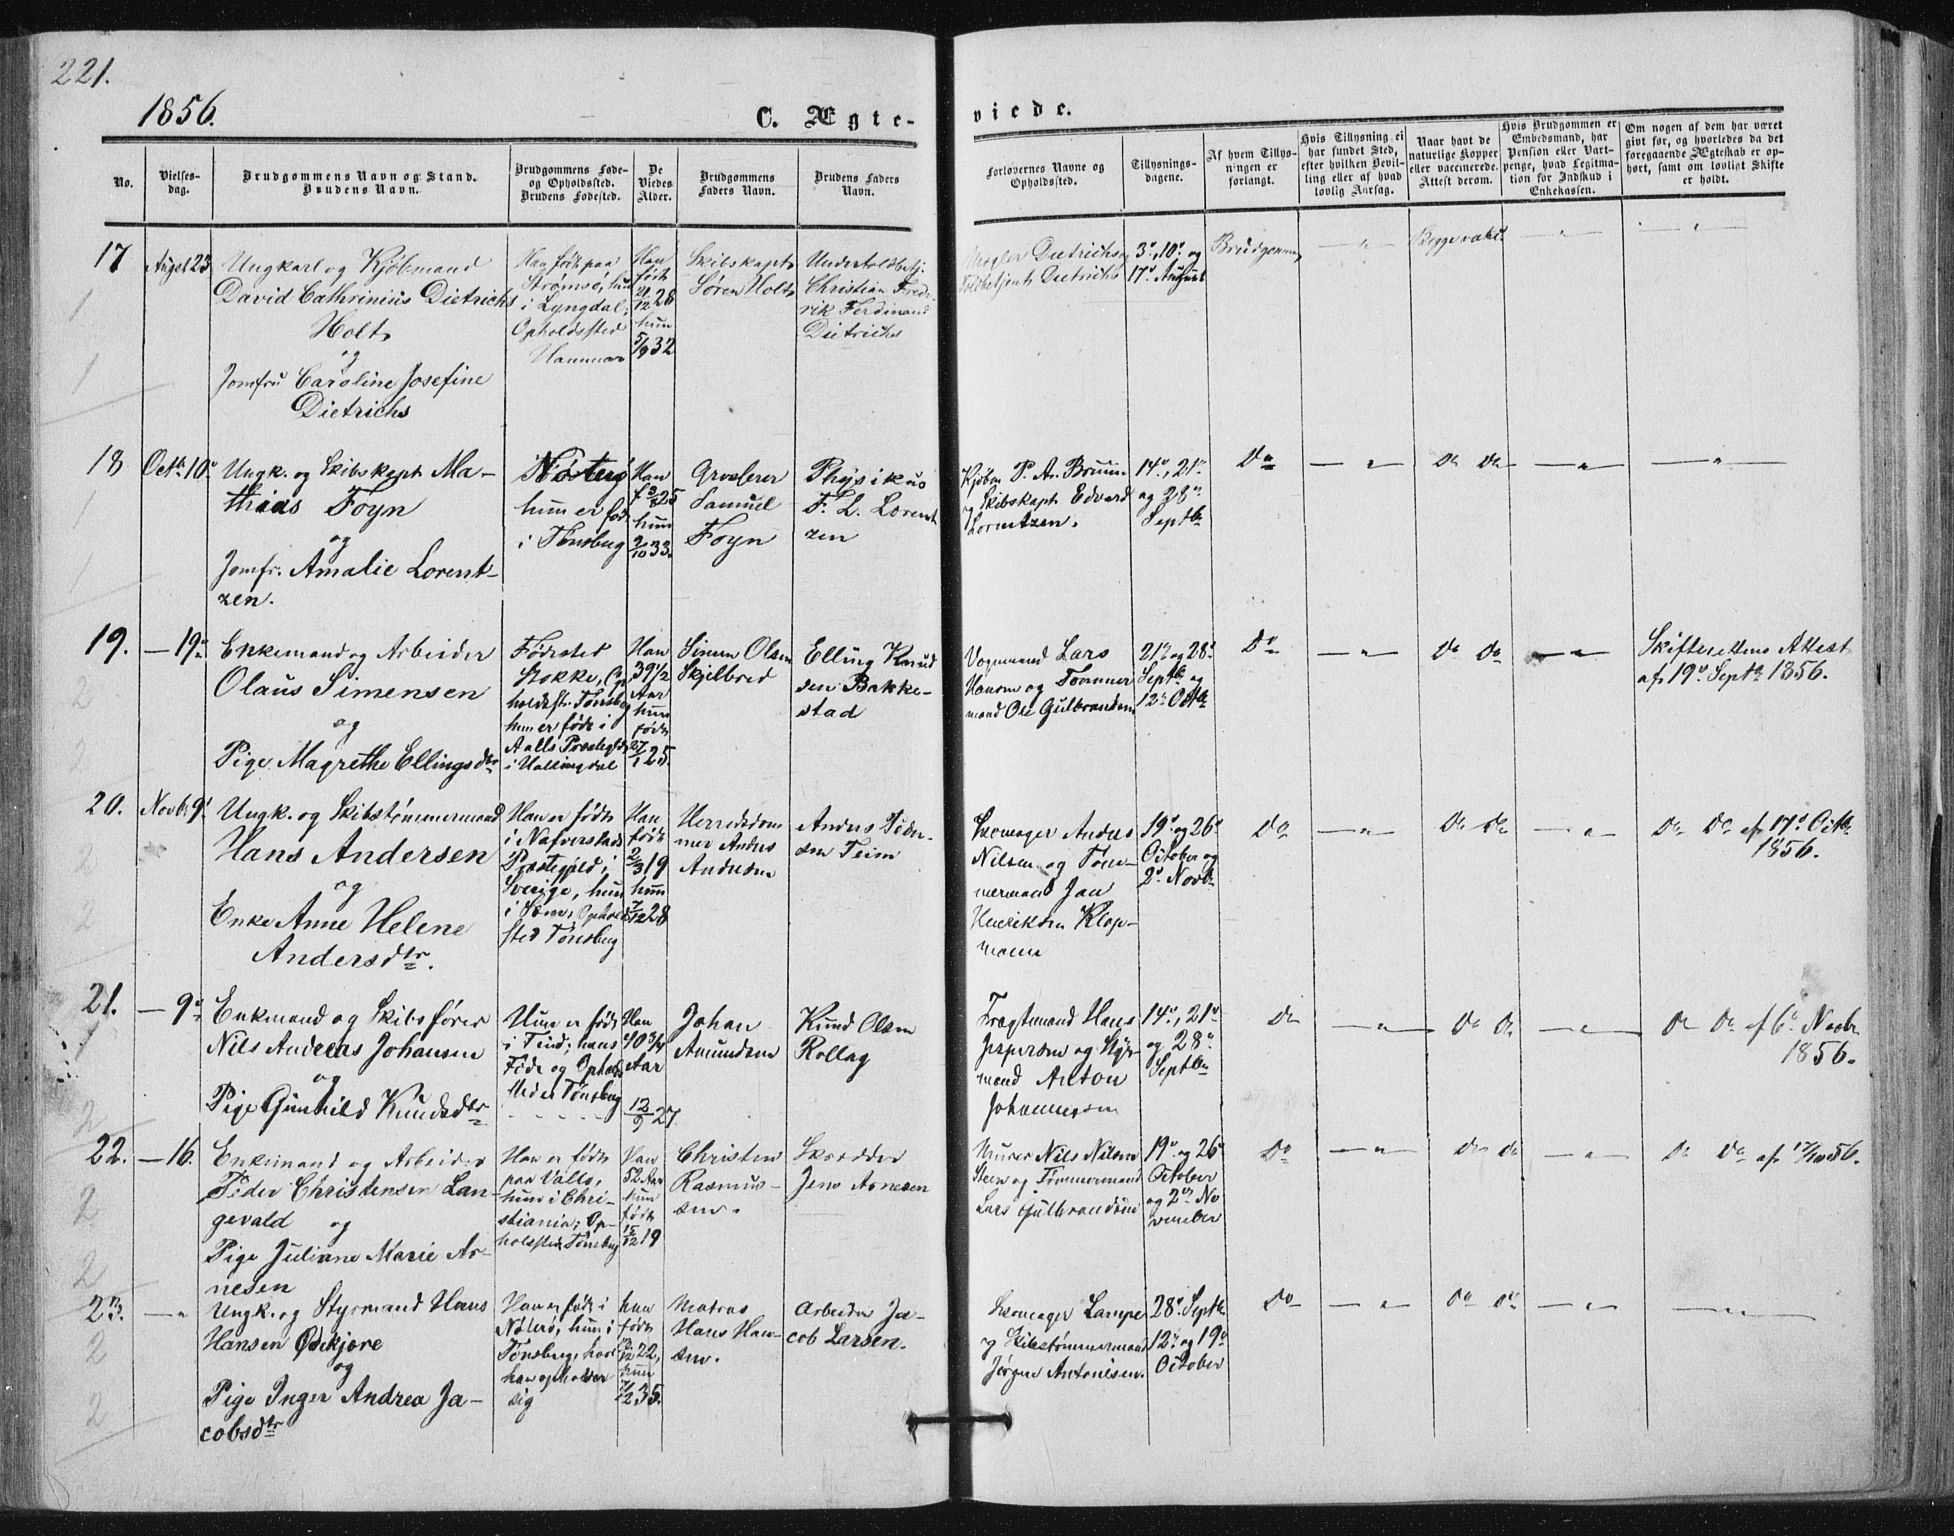 221.
1856.
C. Ægte-
viede.
No.
Vielses-
dag.
Brudgommens Navn og Stand.
Brudens Navn.
Brudgommens Føde-
og Opholdssted.
Brudens Fødested.
De
Viedes
Alder.
Brudgommens
Faders Navn.
Brudens Faders
Navn.
Forlovernes Navne og
Opholdssted.
Tillysnings-
dagene.
Af hvem Tillys-
ningen er
forlangt.
Hvis Tillysning ei
har fundet Sted,
efter hvilken Bevil-
ling eller af hvad
lovlig Aarsag.
Naar havt de
naturlige Kopper
eller vaccinerede.
Attest derom.
Hvis Brudgommen er
Embedsmand, har
Pension eller Vart-
penge, hvad Legitima-
tion for Indskud i
Enkekassen.
Om nogen af dem har været
gift før, og hvorledes da det
foregaaende Ægteskab er op-
hørt, samt om lovligt Skifte
er holdt.
17
August 23
Ungkarl og Kjøbmand
David Cathrinius Dietrichs
Holt
og
Jomfru Caroline Josefine
Dietrichs
Han født paa
Strømsø, hun
i Lyngdal;
Opholdssted
Han
født
21/12 28
hun
5/9 32
Skibskapt
Søren Holt
Undertoldbetj.
Christian Frede-
rik Ferdinand
Dietrichs
Dietrichs og
Toldbetjent Dietrichs
3d, 10d og
17d August
Brudgommen
Begge vakc.
18
Octb. 10d
Ungk. og Skibskapt. Ma-
thias Foyn
og
Jomfr. Amalie Lorent-
zen.
Nøtterø
hun er født
i Tønsberg
Han
25
hun
2/10 33.
Grosserer
Samuel
Foyn
Physikus
F. L. Lorent
zen
Kjøbm P. An. Bruun
og Skibskapt Edvard
Lorentzen.
14d, 21d
og 28d
Septbr
Do
Do Do
19.
— 19d
Enkemand og Arbeider
Olaus Simensen
og
Pige Magrethe Ellingsdtr
Fødested
Stokke, Op
holdsst. Tønsberg
hun er født i
Aalls Præstegjeld
i Hallingdal
Han
39 1/2
Aar
hun
født
27/1 25.
Simen Olsen
Skjelbred
Elling Knud
sen Bakke-
stad
Vognmand Lars
Hansen og Tømmer
mand Ole Gulbrandsen
21d og 28d
Septb og
12d Octbr
Do
Do Do
Skifterettens Attest
af 19d Septbr 1856.
20.
Novb 9d
Ungk. og Skibstømmermand
Hans Andersen
og
Enke Anne Helene
Andersdtr.
Han er født
i Nafverstads
Præstegjeld i
Sverige, hun
i Sem, Ophold
sted Tønsberg
Han
født
2/3 19
hun
7/12 28
Anders
Andersen
Anders Peder-
sen Teim
Anders
Nilsen og Tøm-
mermand Jan
Henriksen Klop-
mann
19d og 26d
October og
2d Novb
Do
Do Do
Do Do af 17d Octbr
1856.
21.
— 9d
Enkemand og Skibsfører
Nils Andreas Johansen
og
Pige Gunhild Knudsdtr
Hun er født
i Tind; hans
Føde og Opholds
sted er Tønsberg
Han
40 3/4
Aar
12/9 27
Johan
Amundsen
Knud Olsen
Rollag
Fragtmand Hans
Jespersen og
mand Anton
Johannesen
14d, 21d
og 28d
Septbr
Do
Do Do
Do Do af 6d Novbr
1856.
22.
— 16.
Enkemand og Arbeider
Peder Christensen Lan-
gevald og
Pige Juliane Marie Ar-
nesen
Han er født
paa Vallø,
hun i Chri-
stiania; Op-
holdsted Tønsberg
Han
52 Aar
hun
født
15/12 19
Christen
Rasmus-
sen.
Skrædder
Jens Arnesen
Murer Nils Nilsen
Steen og Tømmermand
Lars Gulbrandsen
19d og 26d
October
og 2d No
vember
Do
Do Do
Do Do af 17/10 56.
23.
Ungk. og Styrmand Hans
Hansen Øskjære
og
Pige Inger Andrea Ja-
cobsdtr
Han er født i
Nøtterø, hun i
Tønsberg, hvor
han opholder
sig
han
født
22,
hun
35.
Matros
Hans Han-
sen.
Arbeider Ja-
cob Larsen.
Lampe
og Skibstømmermand
Jørgen Antonisen.
28d Septbr
12d og 19d
October
Do
Do Do